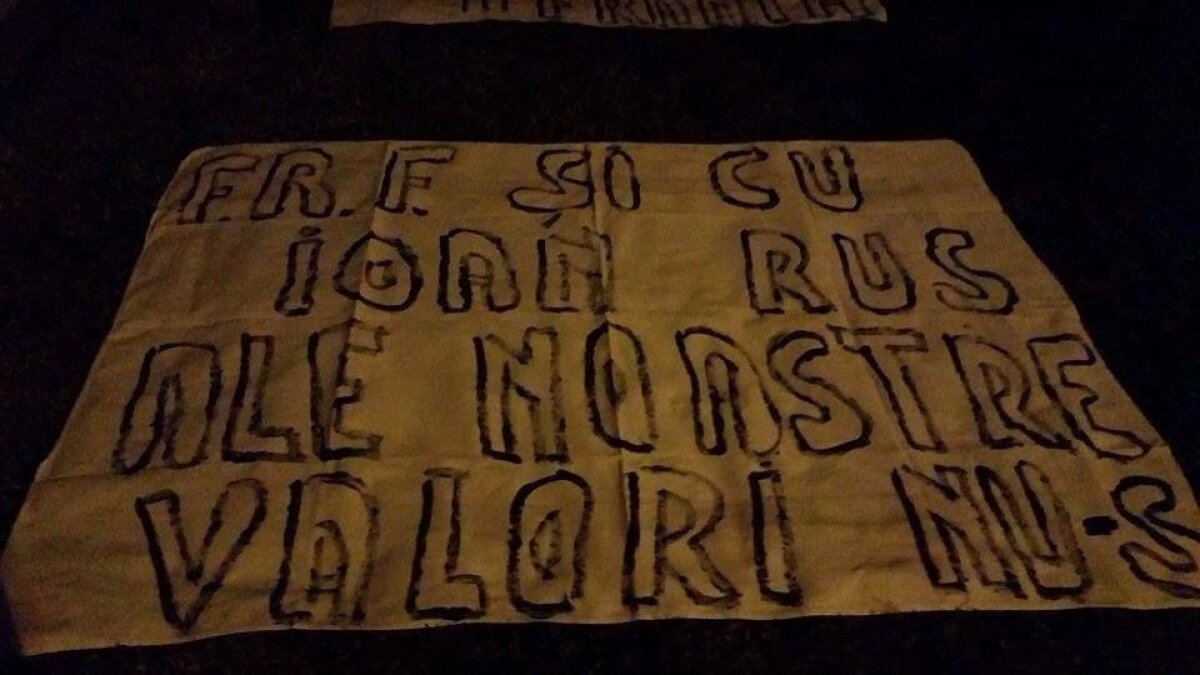 F.R.F. ȘI CU
IOAN RUS
ALE NOASTRE
VALORI NU-S